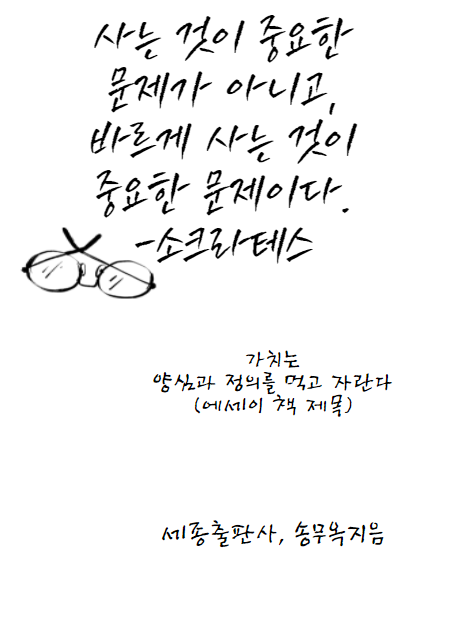 사는 것이 중요한
문제가 아니고,
바르게 사는 것이
중요한 문제이다.
-소크라테스
가치는
양심과 정의를 먹고 자란다
(에세이 책 제목)
세종출판사, 송무옥지음